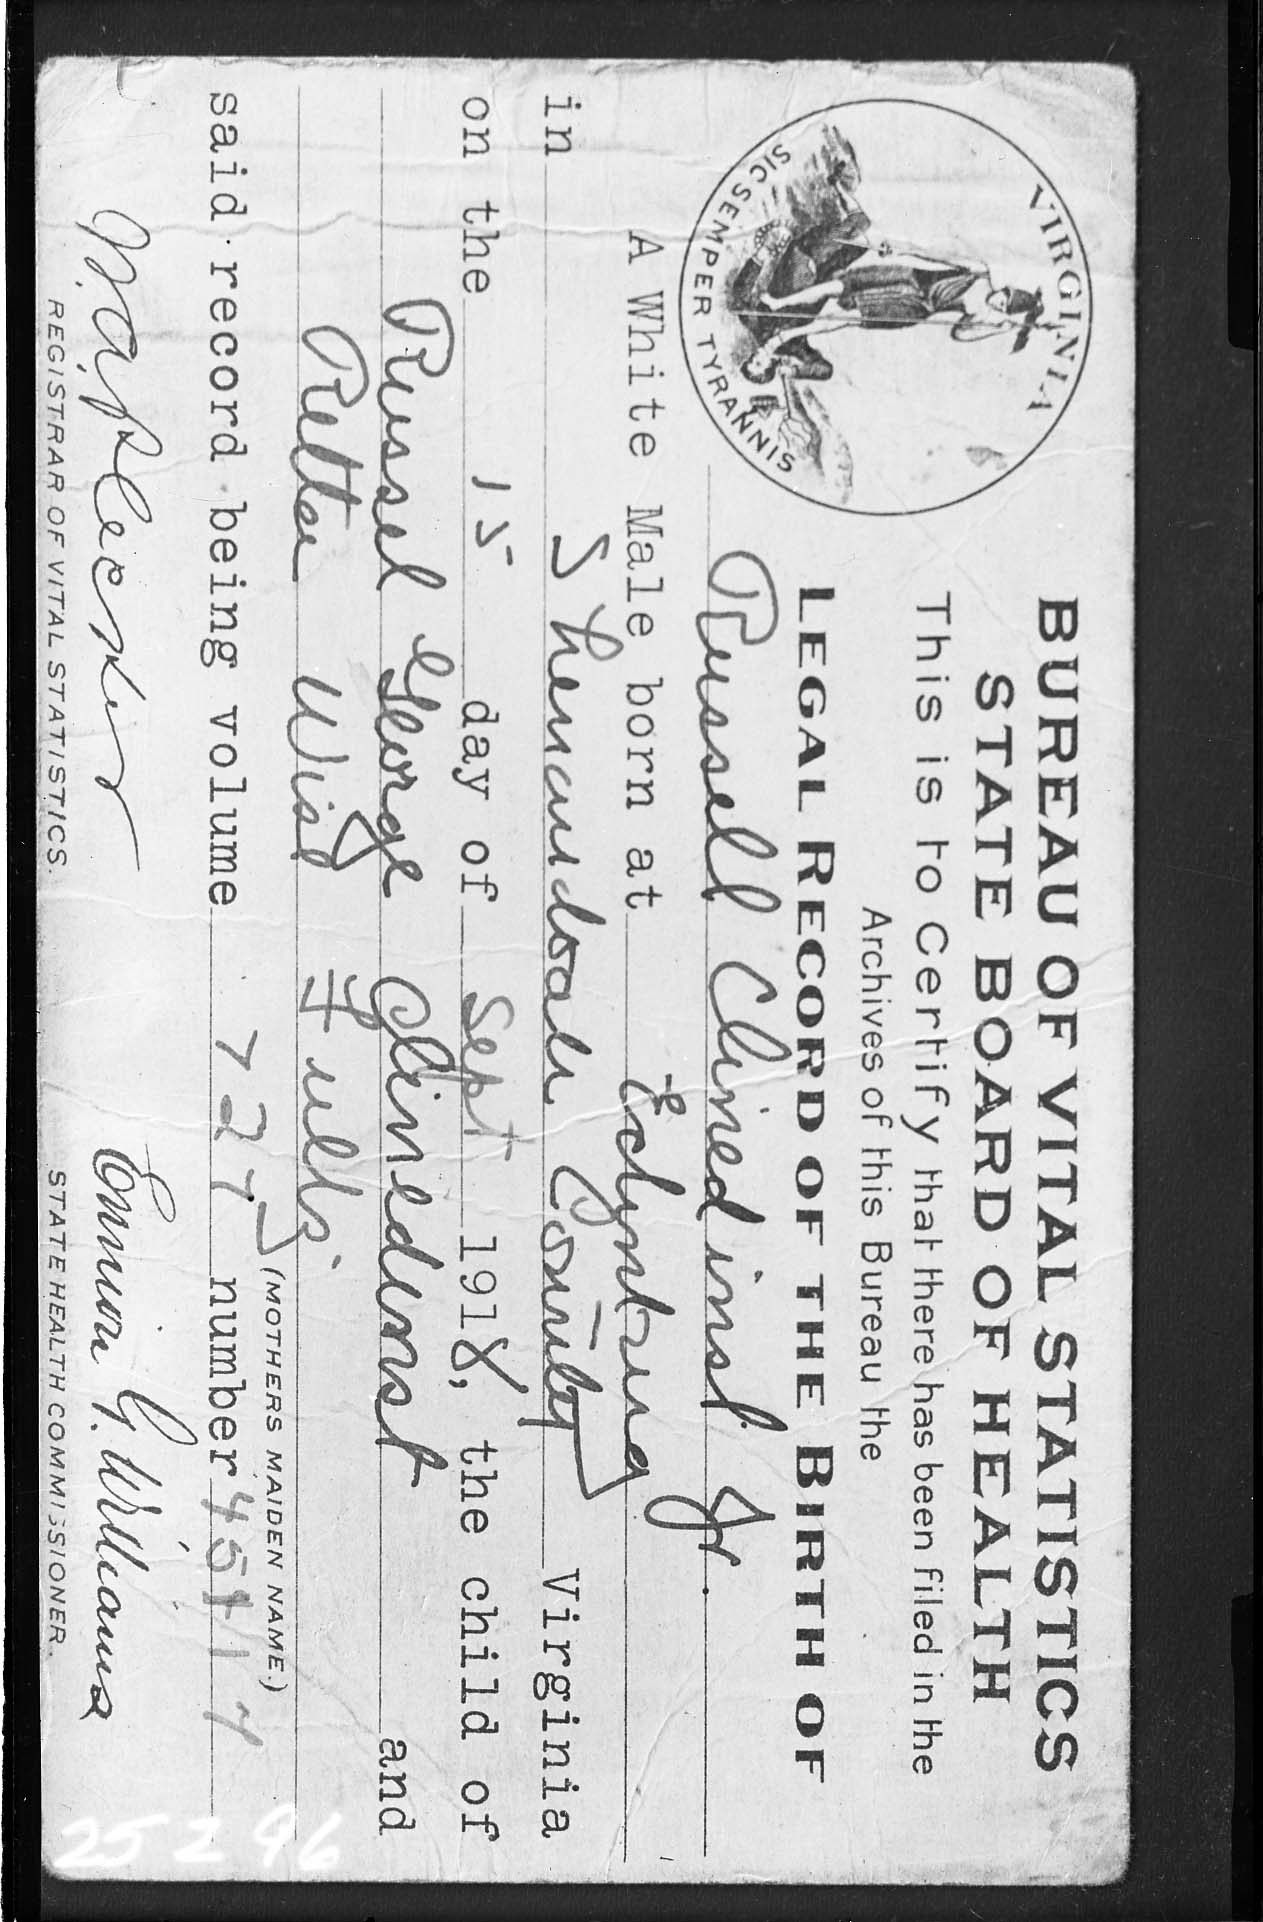 VIRGINIA
SIC SEMPER TYRANNIS
BUREAU OF VITAL STATISTICS
STATE BOARD OF HEALTH
This is to Certify that there has been filed in the
Archives of this Bureau the
LEGAL RECORD OF THE BIRTH OF
Russell Clinedinst Jr.
A White Male born at
in Shenandoah County Virginia
on the 15 day of Sept 1918, the child of
Russel George Clinedinst and
Retta Wise
(MOTHERS MAIDEN NAME.)
said record being volume 727 number
W. A. Plecker Ennion G. Williams
REGISTRAR OF VITAL STATISTICS. STATE HEALTH COMMISSIONER.
25296